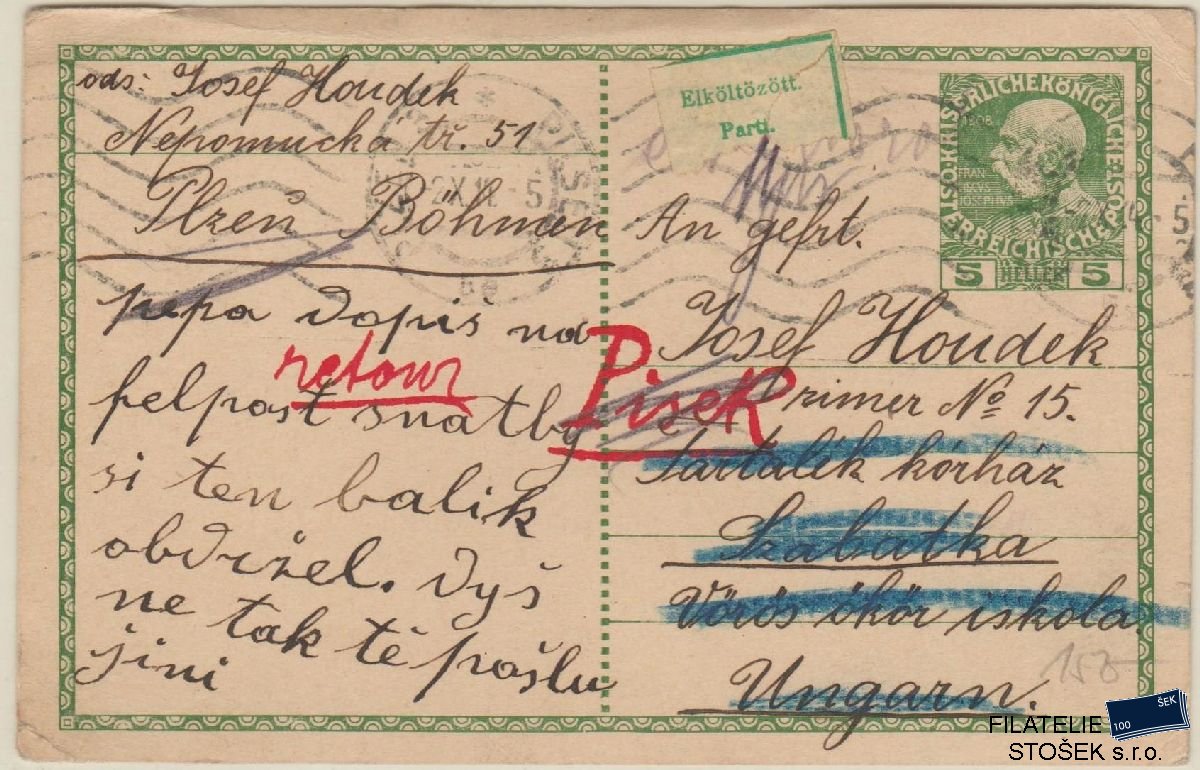 ods: Josef Houdek
Nepomucká tř. 51
Plzeň Böhmen
pepa dopis na
felpost snatby
si ten balik
obdržel. dyš
ne tak tě pošlu
jini
retour
Pisek
Elköltözött.
Parti.
An gefrt.
Josef Houdek
Primer No 15.
Tartalék kórház
Szabatka
Vörös ökör iskola
Ungarn.
1908
5 HELLER 5
150
FILATELIE
STOŠEK s.r.o.
100 ŠEK